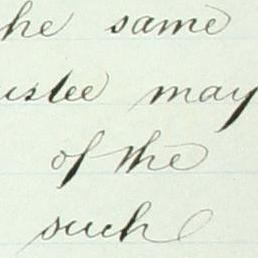 he same
ustee may
of the
such